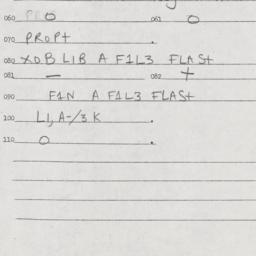 060 PEO 061 O
070 PROPt .
080 XOB LIB A F1L3 FLASt
081 — 082 +
090 F1N A F1L3 FLASt
100 L1, A-/3 K .
110 O .